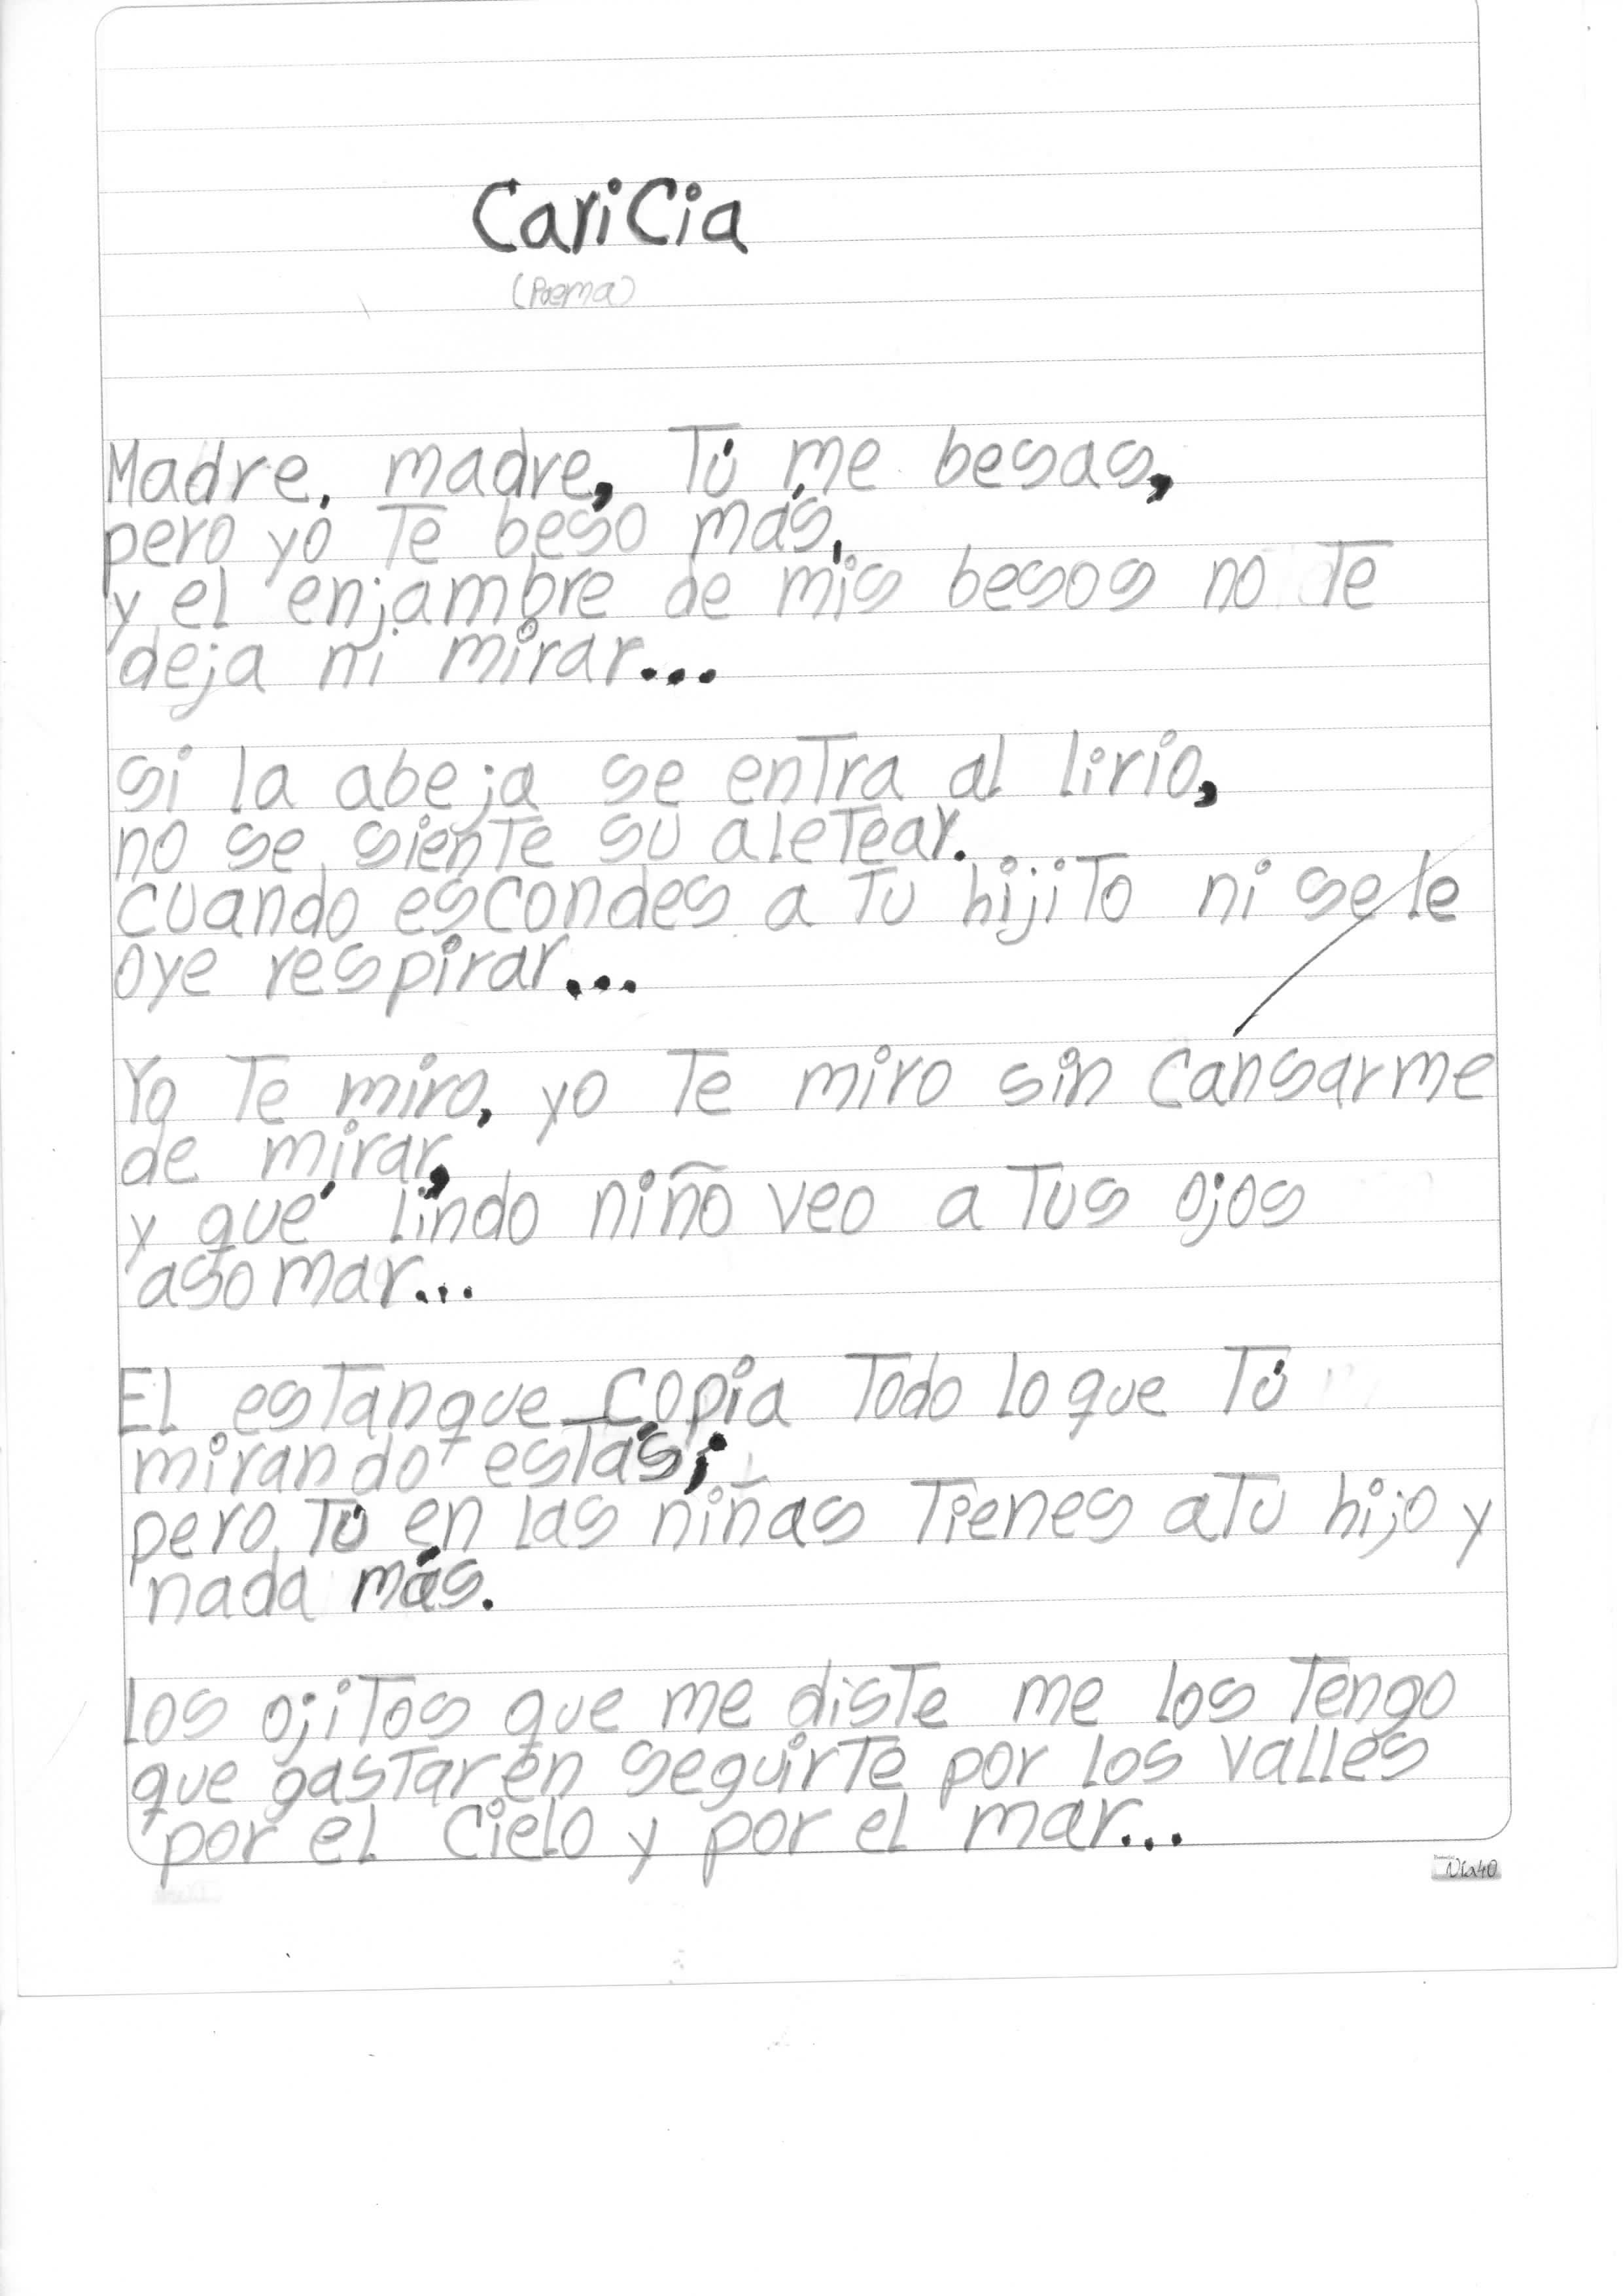 Caricia
(Poema)
Madre, madre, Tú me besas,
pero yo Te beso más,
y el enjambre de mis besos no Te
deja ni mirar...
si la abeja se enTra al lirio,
no se sienTe su aleTear.
cuando escondes a Tu hijiTo ni se/le
oye respirar...
Yo Te miro, yo Te miro sin cansarme
de mirar,
y qué lindo niño veo a Tus ojos
asomar...
El esTanque copia Todo lo que Tú
mirando esTás;
pero Tú en las niñas Tienes a Tu hijo y
nada más.
los ojiTos que me disTe me los Tengo
que gasTar en seguirTe por los valles
por el cielo y por el mar...
Vía40